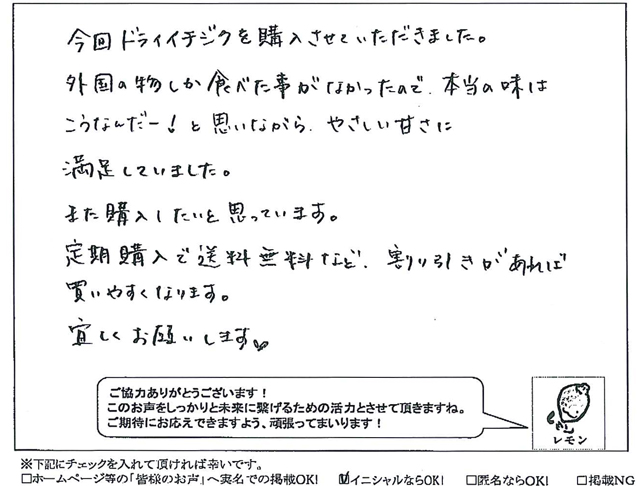 今回ドライイチジクを購入させていただきました。
外国の物しか食べた事がなかったので、本当の味は
こうなんだー！と思いながら、やさしい甘さに
満足していました。
また購入したいと思っています。
定期購入で送料無料など、割り引きがあれば
買いやすくなります。
宜しくお願いします。
ご協力ありがとうございます！
このお声をしっかりと未来に繋げるための活力とさせて頂きますね。
ご期待にお応えできますよう、頑張ってまいります！
レモン
※下記にチェックを入れて頂ければ幸いです。
□ホームページ等の「皆様のお声」へ実名での掲載OK! ☑イニシャルならOK! □匿名ならOK! □掲載NG